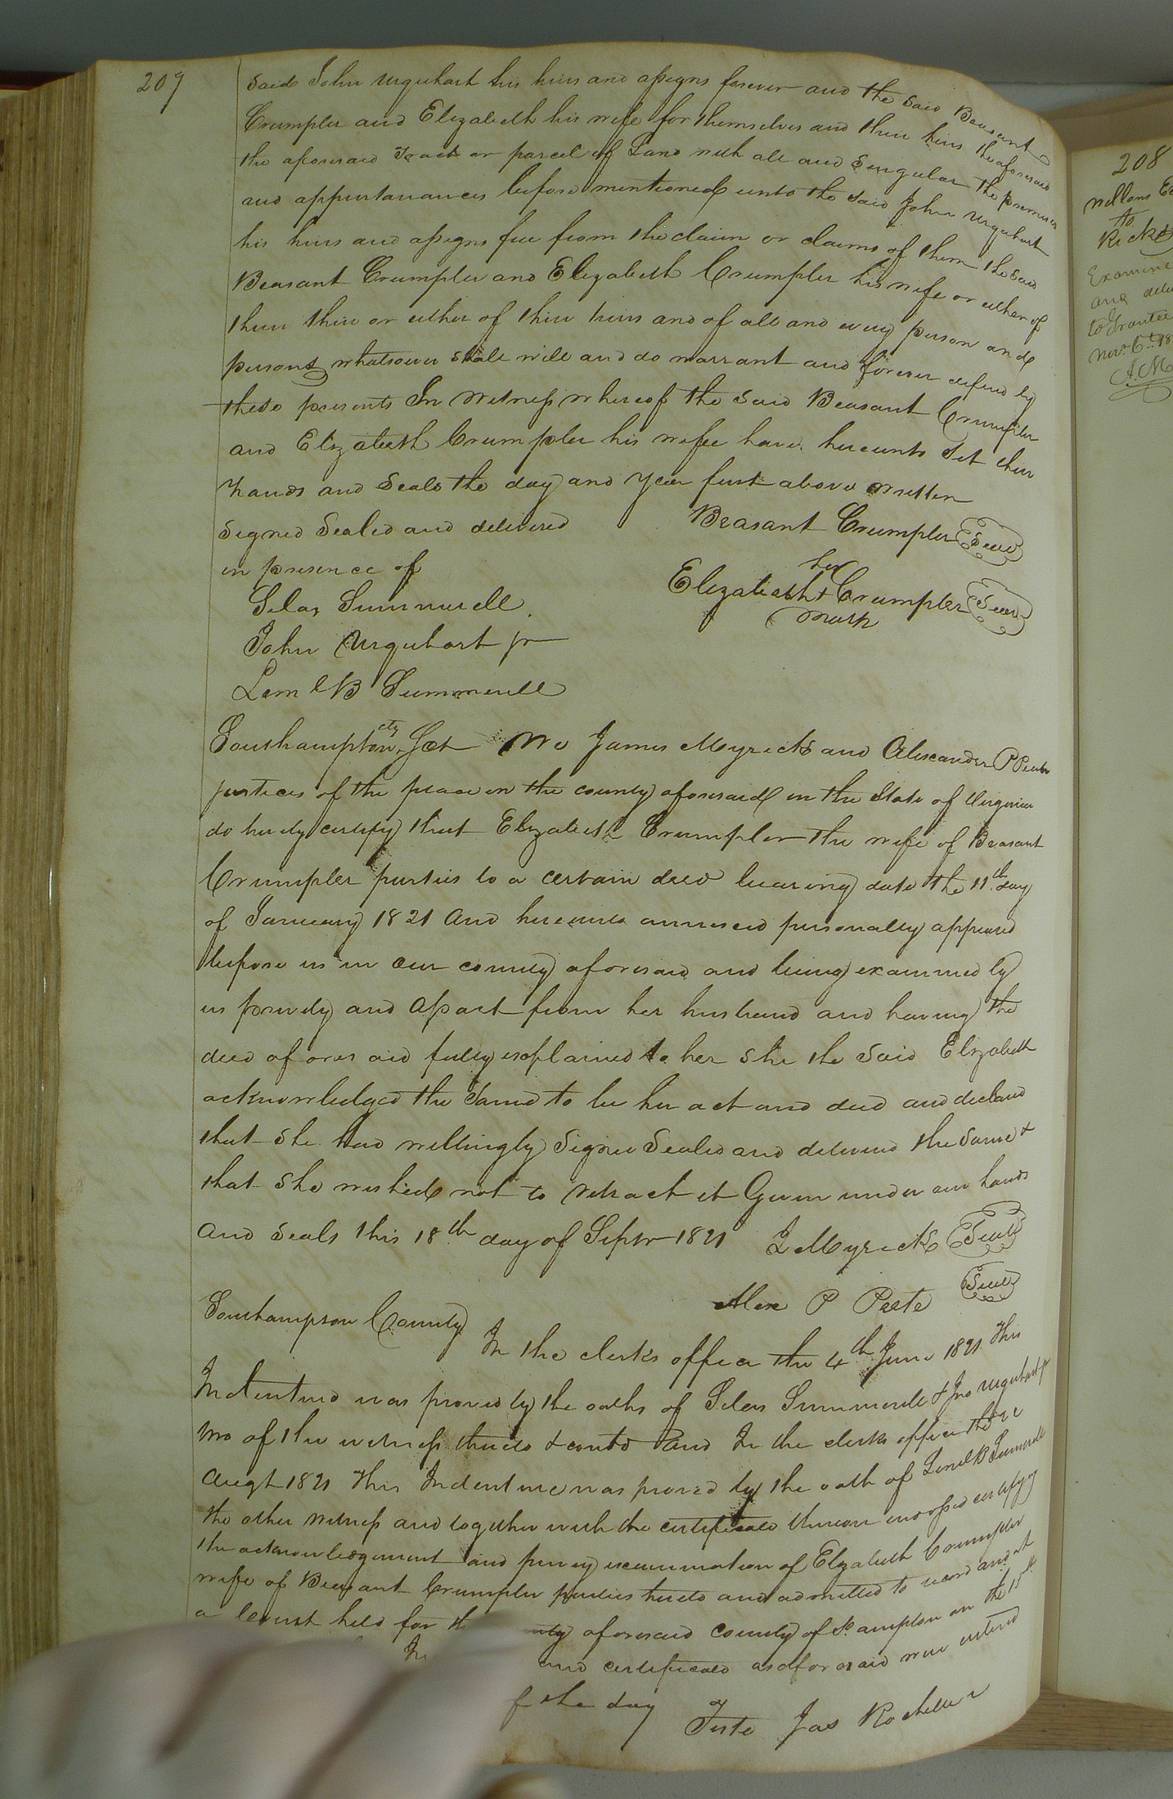 207
Said John Urquhart his heirs and assigns forever and the Said Beasant
Crumpler and Elizabeth his wife for themselves and their heirs the aforesaid
the aforesaid Tract or parcel of Land with all and Singular the premises
and appurtanances before mentioned unto the Said John Urquhart
his heirs and assigns free from the claim or claims of them the Said
Beasant Crumpler and Elizabeth Crumpler his wife or either of
them their or either of their heirs and of all and every person and
persons whatsoever shall will and do warrant and forever defend by
these presents In Witness whereof the Said Beasant Crumpler
and Elizabeth Crumpler his wife have hereunto Set their
hands and Seals the day and year first above written
Signed Sealed and delivered Beasant Crumpler Seal
in presence of
her
Elizabeth + Crumpler Seal
mark
Silas Summerell
John Urquhart jr
Leml B Summerell
Southampton cty, Sct We James Myrick and Alexander P Peete
justices of the peace in the county aforesaid in the State of Virginia
do hereby certify that Elizabeth Crumpler the wife of Beasant
Crumpler parties to a certain deed bearing date the 11th day
of January 1821 and hereunto annexed personally appeared
before us in our county aforesaid and being examined by
us privily and apart from her husband and having the
deed aforesaid fully explained to her she the Said Elizabeth
acknowledged the Same to be her act and deed and declared
that she had willingly Signed Sealed and delivered the Same &
that she wished not to retract it Given under our hands
and Seals this 18th day of Septr 1821 J Myrick Seal
Alex P Peete Seal
Southampton County
In the clerks office the 4th June 1821 This
Indenture was proved by the oaths of Silas Summerell & Jno Urquhart jr
two of the witness thereto & contd And In the clerks office the
Augt 1821 This Indenture was proved by the oath of Leml B Summerell
the other witness and together with the certificate thereon endorsed certifyg
the acknowledgement and privy examination of Elizabeth Crumpler
wife of Beasant Crumpler parties hereto and admitted to record and at
a Court held for the aforesaid county of Sampton on the 15th
In and certificate as aforesaid were entered
of the day Teste Jas Rochelle
208
to
Ricks
Examined
and
to Grantee
Novr 6th 18